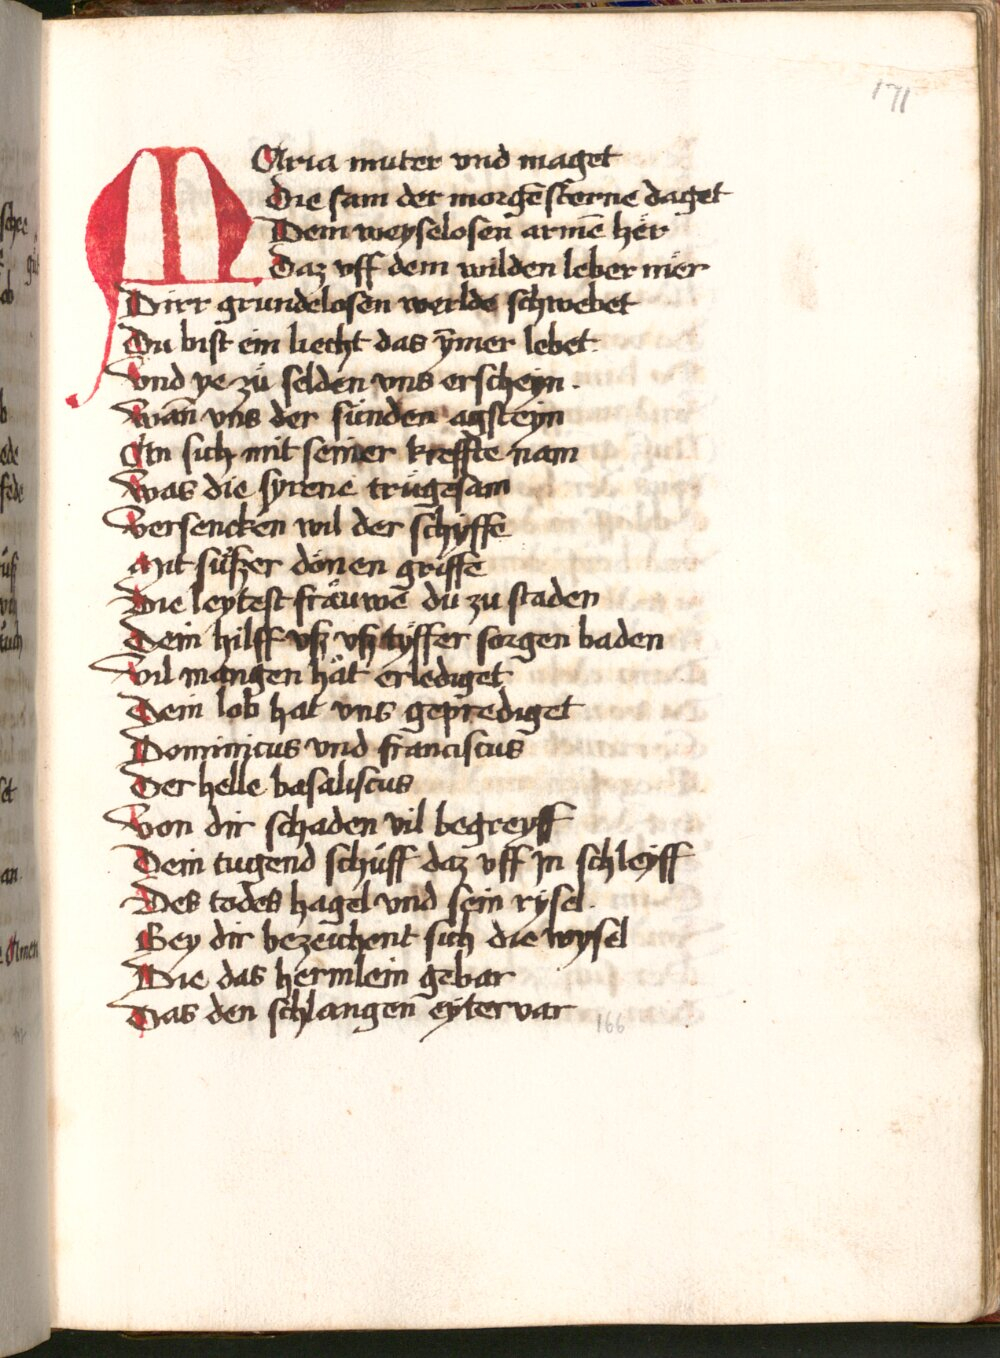 171
MAria muter vnd maget
Die sam der morgē sterne daget
Dem weyselosen armē her
Daz vff dem wilden leber mer
Dirr grundelosen werlde schwebet
Du bist ein liecht das ymer lebet
Vnd ye zů selden vns erscheyn.
Wañ vns der sünden agsteyn
An sich mit seiner kreffte nam
Was die syrene trügesam
Versencken wil der schyffe
Mit süßzer dönen griffe
Die leytest fräuwē du zu staden
Dein hilff vsz vsz tyffer sorgen baden
Vil mangen hät erlediget
Dein lob hat vns geprediget
Dominicus vnd franciscus
Der helle basaliscus
Von dir schaden vil begreyff
Dein tugend schüff daz vff In schleyff
Des todes hagel vnd sein rysel.
Bey dir bezeichent sich die wysel
Die das hermlein gebar
Das den schlangen eyter var
166